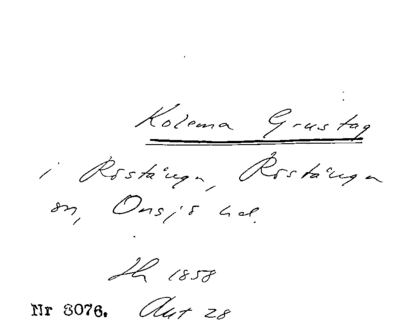 Kolema Grustag
i Röstånga, Röstånga
sn, Onsjö hd.
Ih 1858
Nr 3076. Aut 28